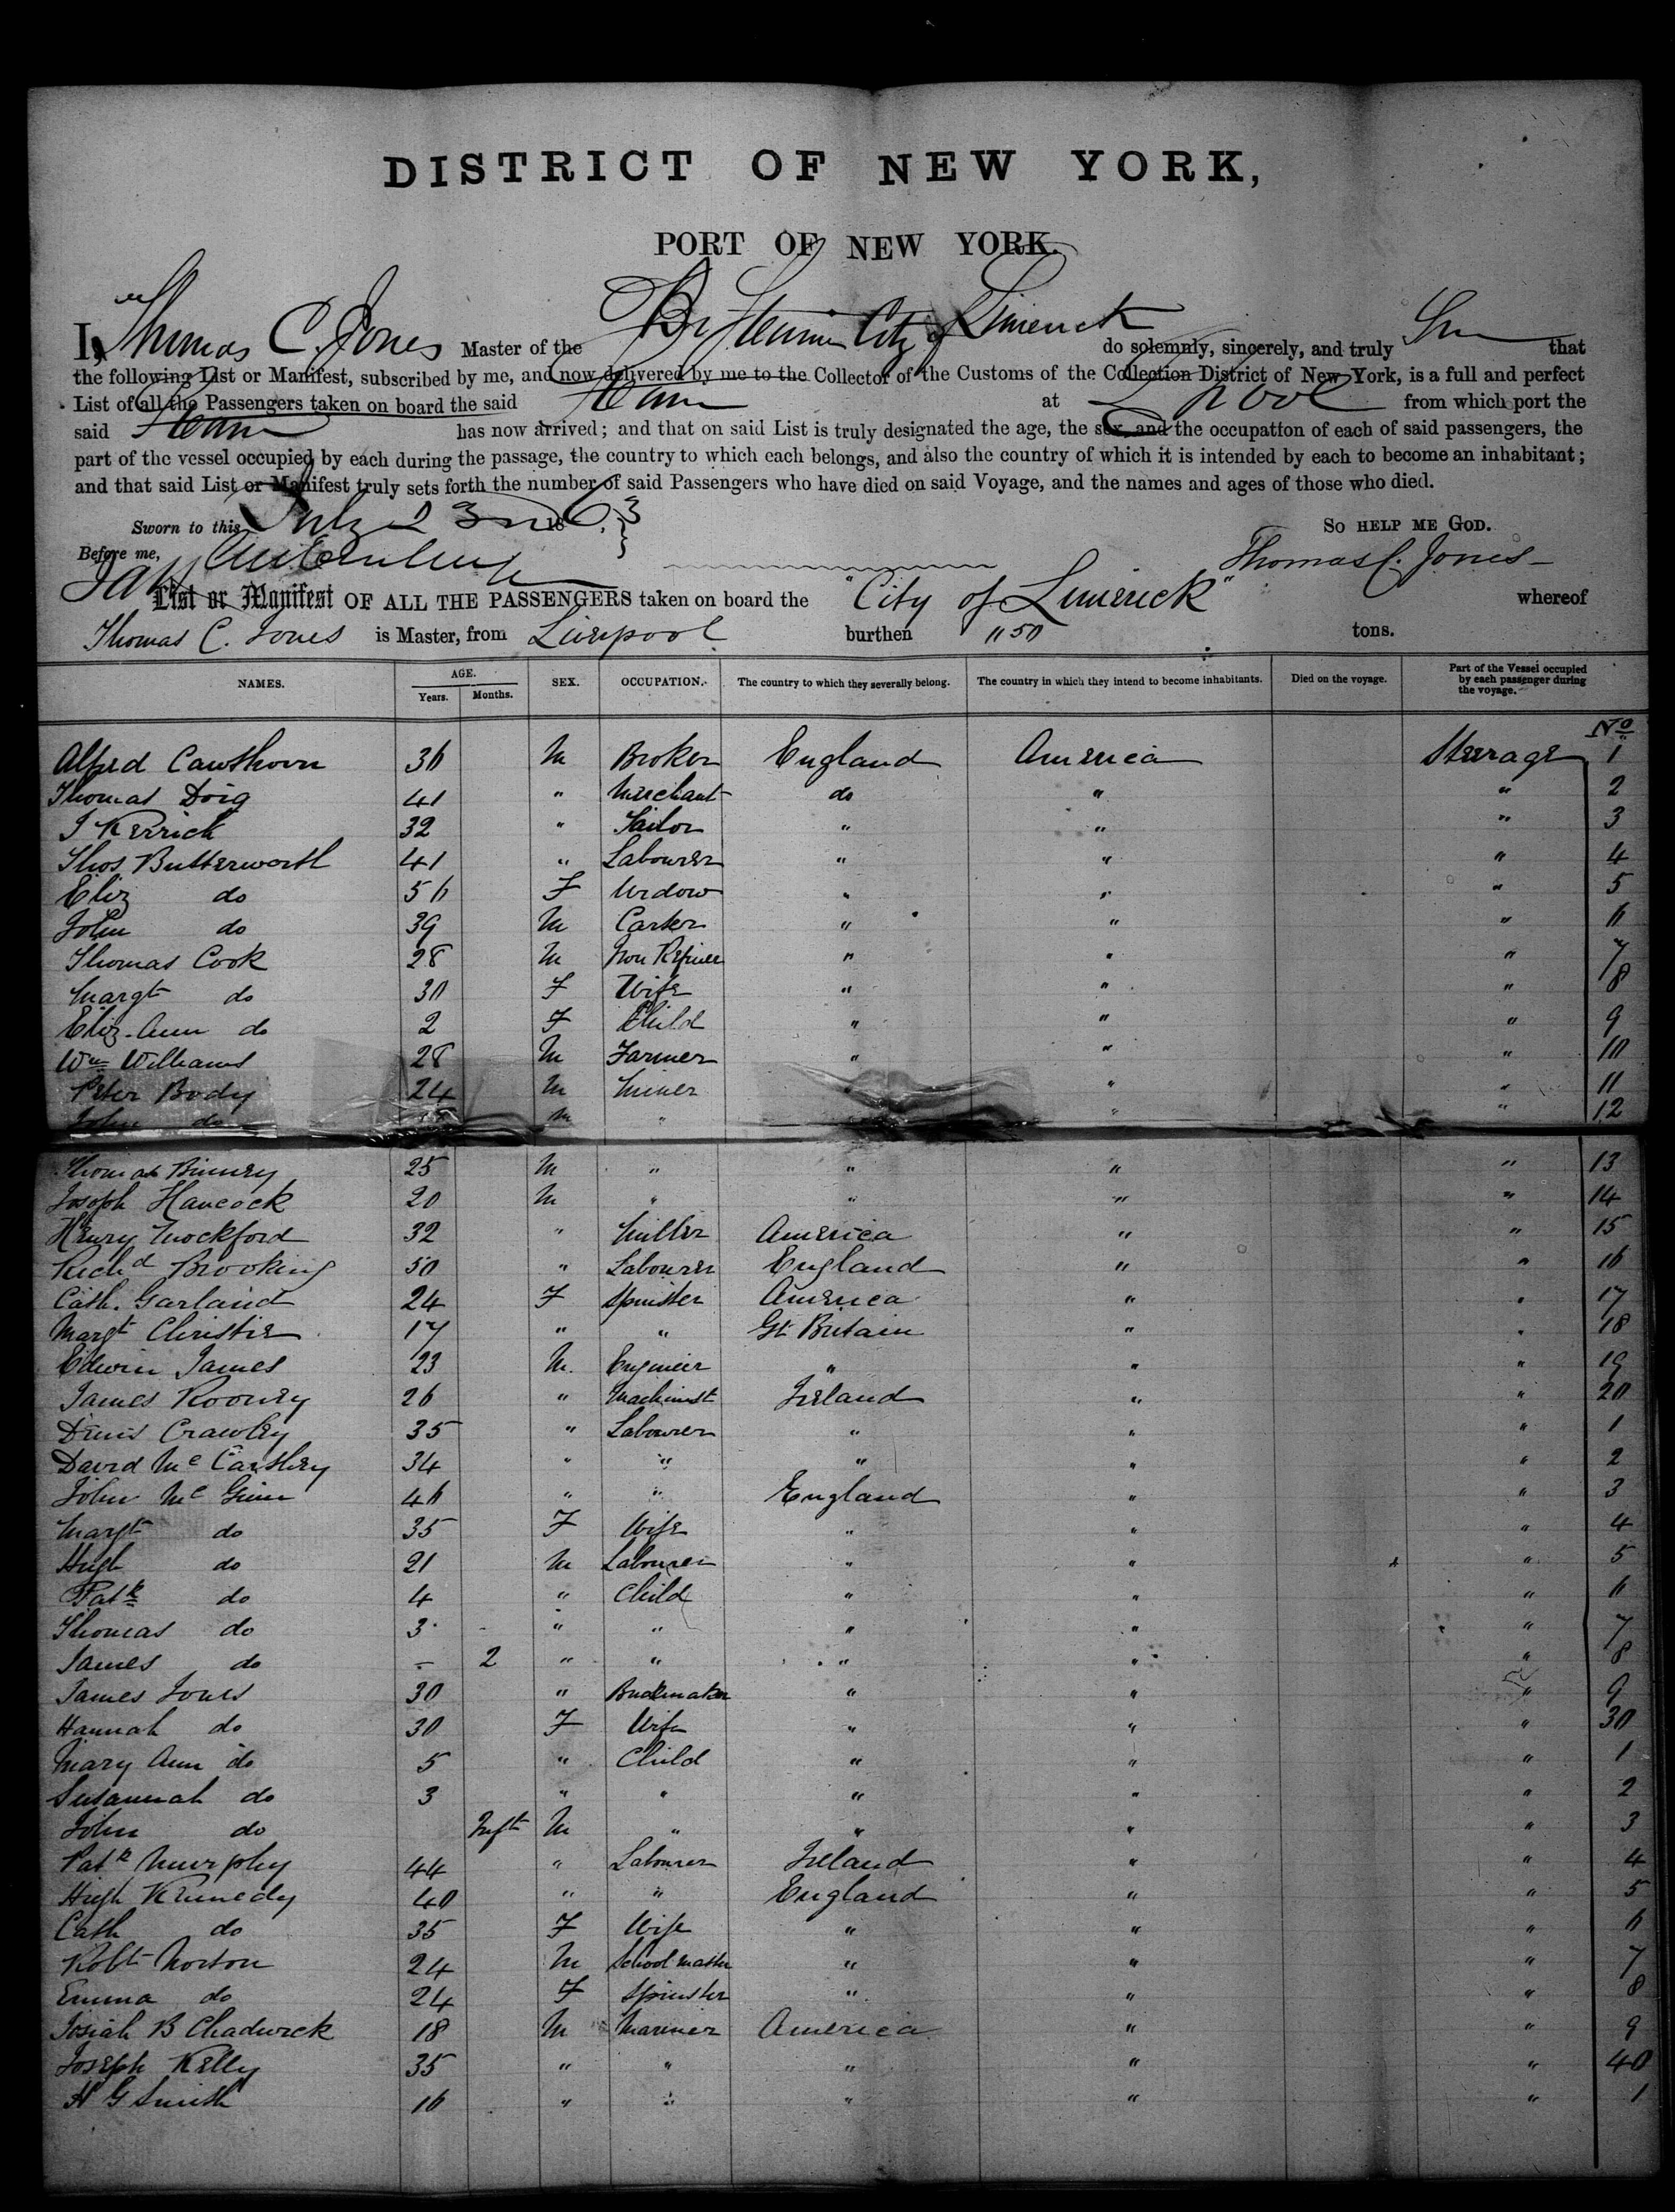 DISTRICT OF NEW YORK,
PORT OF NEW YORK.
I, Thomas C. Jones Master of the Br Steamer City of Limerick do solemnly, sincerely, and truly that
the following List or Manifest, subscribed by me, and now delivered by me to the Collector of the Customs of the Collection District of New York, is a full and perfect
List of all the Passengers taken on board the said Steamer at L'pool from which port the
said Steamer has now arrived; and that on said List is truly designated the age, the sex, and the occupation of each of said passengers, the
part of the vessel occupied by each during the passage, the country to which each belongs, and also the country of which it is intended by each to become an inhabitant;
and that said List or Manifest truly sets forth the number of said Passengers who have died on said Voyage, and the names and ages of those who died.
Sworn to this July 23rd 186.3 SO HELP ME GOD.
Before me, Thomas C. Jones
List or Manifest OF ALL THE PASSENGERS taken on board the "City of Limerick" whereof
Thomas C. Jones is Master, from Liverpool burthen "50 tons.
NAMES. AGE. Years. Months. SEX. OCCUPATION. The country to which they severally belong. The country in which they intend to become inhabitants. Died on the voyage. Part of the Vessel occupied by each passenger during the voyage. No
Alfred Cawthorn 36 M Broker England America Steerage 1
Thomas Doig 41 " Merchant do " " 2
J Kerrick 32 " Tailor " " " 3
Thos Butterworth 41 " Labourer " " " 4
Eliz do 56 F Widow " " " 5
John do 39 M Carter " " " 6
Thomas Cook 28 M Iron Refiner " " " 7
Margt do 30 F Wife " " " 8
Eliz. Ann do 2 F Child " " " 9
Wm Williams 28 M Farmer " " " 10
Peter Body 24 M Miner " " " 11
John do M " " " 12
Thomas Binney 25 M " " " " 13
Joseph Hancock 20 M " " " " 14
Henry Mockford 32 " Miller America " " 15
Richd Brooking 50 " Labourer England " " 16
Cath. Garland 24 F Spinster America " " 17
Margt Christie 17 " " Gt Britain " " 18
Edwin James 23 M. Engineer " " " 19
James Rooney 26 " Machinist Ireland " " 20
Denis Crawley 35 " Labourer " " " 1
David Mc Carthey 34 " " " " " 2
John Mc Guin 46 " " England " " 3
Margt do 35 F Wife " " " 4
Hugh do 21 M Labourer " " " 5
Patk do 4 " Child " " " 6
Thomas do 3 " " " " " 7
James do – 2 " " " " " 8
James Jones 30 " " " " 9
Hannah do 30 F Wife " " " 30
Mary Ann do 5 " Child " " " 1
Susannah do 3 " " " " " 2
John do Inft M " " " " 3
Patk Murphy 44 " Labourer Ireland " " 4
Hugh Kennedy 40 " " England " " 5
Cath do 35 F Wife " " " 6
Robt Norton 24 M School master " " " 7
Emma do 24 F Spinster " " " 8
Josiah B Chadwick 18 M Mariner America " " 9
Joseph Kelly 35 " " " " " 40
H G Smith 16 " " " " " 1